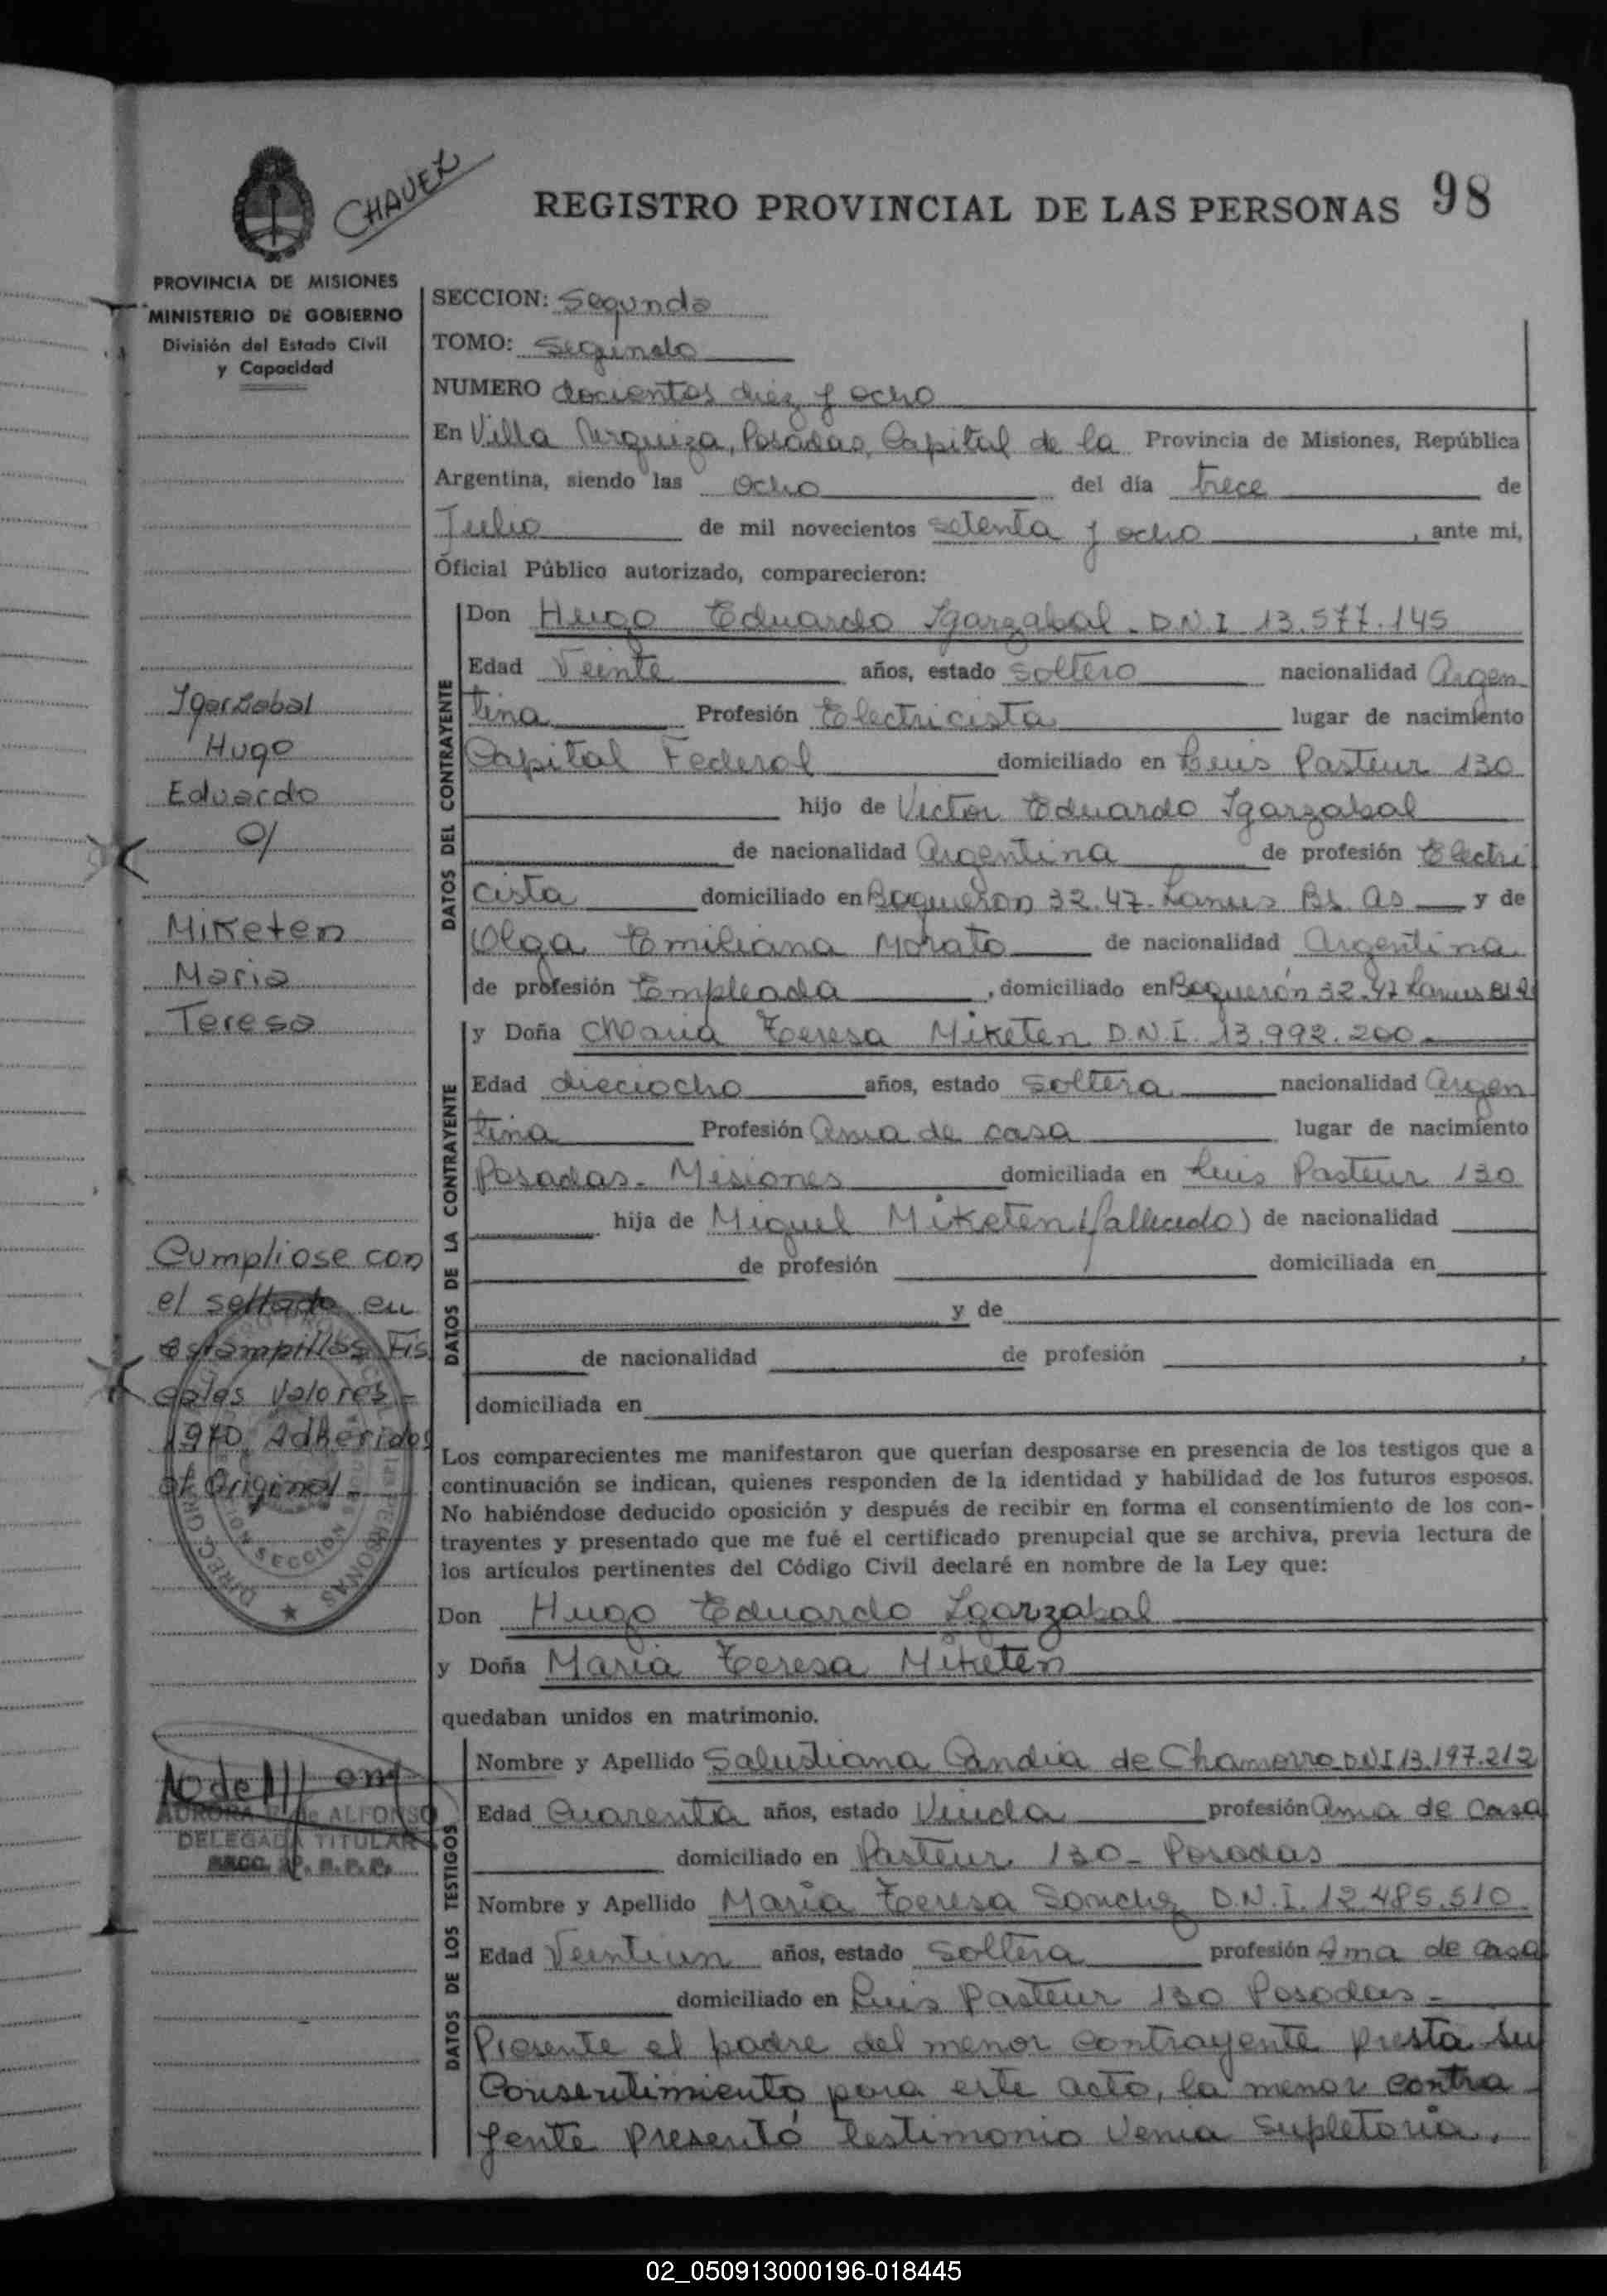 CHAVEZ
REGISTRO PROVINCIAL DE LAS PERSONAS 98
PROVINCIA DE MISIONES
MINISTERIO DE GOBIERNO
División del Estado Civil
y Capacidad
SECCION: Segunda
TOMO: Segundo
NUMERO docientos diez y ocho
En Villa Urquiza, Posadas, Capital de la Provincia de Misiones, República
Argentina, siendo las ocho del día trece de
Julio de mil novecientos setenta y ocho, ante mi,
Oficial Público autorizado, comparecieron:
DATOS DEL CONTRAYENTE
Don Hugo Eduardo Igarzabal - D.N.I 13.577.145
Edad Veinte años, estado soltero nacionalidad Argen
tina Profesión Electricista lugar de nacimiento
Capital Federal domiciliado en Luis Pasteur 130
hijo de Victor Eduardo Igarzabal
de nacionalidad Argentina de profesión Electri
cista domiciliado en Boqueron 32.47-Lanus Bs. As y de
Olga Emiliana Morato de nacionalidad Argentina
de profesión Empleada, domiciliado en Boquerón 32.47 Lanus
DATOS DE LA CONTRAYENTE
y Doña Maria Teresa Miketen D.N.I. 13.992.200
Edad dieciocho años, estado soltera nacionalidad Argen
tina Profesión Ama de casa lugar de nacimiento
Posadas - Misiones domiciliada en Luis Pasteur 130
hija de Miguel Miketen (fallecido) de nacionalidad
de profesión domiciliada en
y de
de nacionalidad de profesión
domiciliada en
Igarzabal
Hugo
Eduardo
c/
Miketen
Maria
Teresa
Cumpliose con
el sellado en
estampillas Fis
cales valores
1970. Adheridos
al Original -
Los comparecientes me manifestaron que querían desposarse en presencia de los testigos que a
continuación se indican, quienes responden de la identidad y habilidad de los futuros esposos.
No habiéndose deducido oposición y después de recibir en forma el consentimiento de los con-
trayentes y presentado que me fué el certificado prenupcial que se archiva, previa lectura de
los artículos pertinentes del Código Civil declaré en nombre de la Ley que:
Don Hugo Eduardo Igarzabal
y Doña Maria Teresa Miketen
quedaban unidos en matrimonio.
DATOS DE LOS TESTIGOS
Nombre y Apellido Salustiana Candia de Chamorro D.N.I 13.197.212
Edad Cuarenta años, estado Viuda profesión Ama de Casa
domiciliado en Pasteur 130 - Posadas
Nombre y Apellido Maria Teresa Sanchez D.N.I. 12.485.510
Edad Veintiun años, estado soltera profesión Ama de casa
domiciliado en Luis Pasteur 130 Posadas -
Presente el padre del menor contrayente presta su
Consentimiento para este acto, la menor contra
yente presentó testimonio Venia Supletoria.
DELEGADA TITULAR
02_050913000196-018445